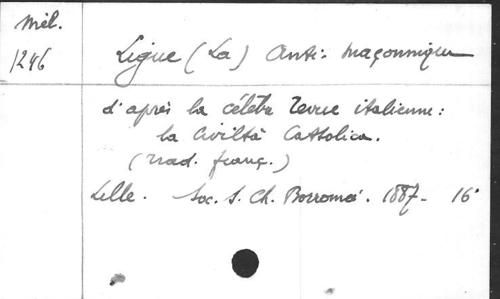 Mél.
1246
Ligue (La) Anti-maçonnique
d'après la célèbre revue italienne:
la Civiltà Cattolica.
(trad. franç.)
Lille. Soc. S. Ch. Borromée. 1887. 16°